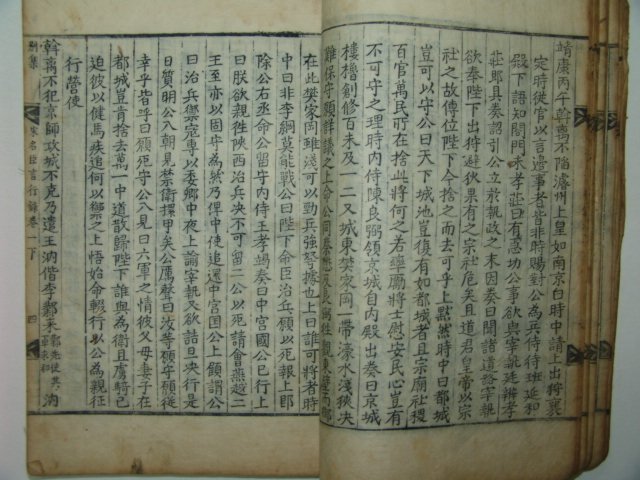 靖康丙午斡离不陷濬州上皇如南京白時中請上出狩襄
定時從官以言邊事者皆非時賜對公為兵侍待班延和
殿下語知閤門朱孝莊曰有惡切公事欲與宰執廷辨孝
莊即具奏詔引公立於執政之末因奏曰聞諸道路宰執
欲奉陛下出狩避狄果有之宗社危矣且道君皇帝以宗
社之故傳位陛下今捨之而去可乎上黙然時中曰都城
豈可以守公曰天下城池豈復有如都城者且宗廟社稷
百官萬民所在捨此將何之若率勵將士慰安民心豈有
不可守之理時內侍陳良弼領京城自內殿出奏曰京城
樓櫓創修百未及一二又城東樊家岡一帶濠水淺狹决
難保守願詳議之上命公同蔡懋良弼徃觀東壁
在此樊家岡雖淺可以勁兵強弩據也上曰誰可將者時
中曰非李綱莫能戰公曰陛下命臣治兵願以死報上即
除公右丞命公留守內侍王孝竭奏曰中宮國公已行上
曰朕欲親徃陝西治兵决不可留二公以死請會燕越二
王至亦以固守為然乃俾中使追還中宮國公上顧謂公
曰治兵禦寇專以委卿中夜上諭宰執又欲詰旦决行是
日質明公入朝見禁衛擐甲矣公厲聲曰汝等願守願從
幸乎皆呼曰願死守公入見曰六軍之情彼父母妻子在
都城豈肯捨去萬一中道散歸陛下誰與為衛且虜騎已
迫彼以健馬疾追何以禦之上悟始命輟行以公為親征
行營使
斡离不犯京師攻城不克乃遣王汭偕李鄴來鄴先使其軍求和汭
別集 宋名臣言行錄卷一下 四